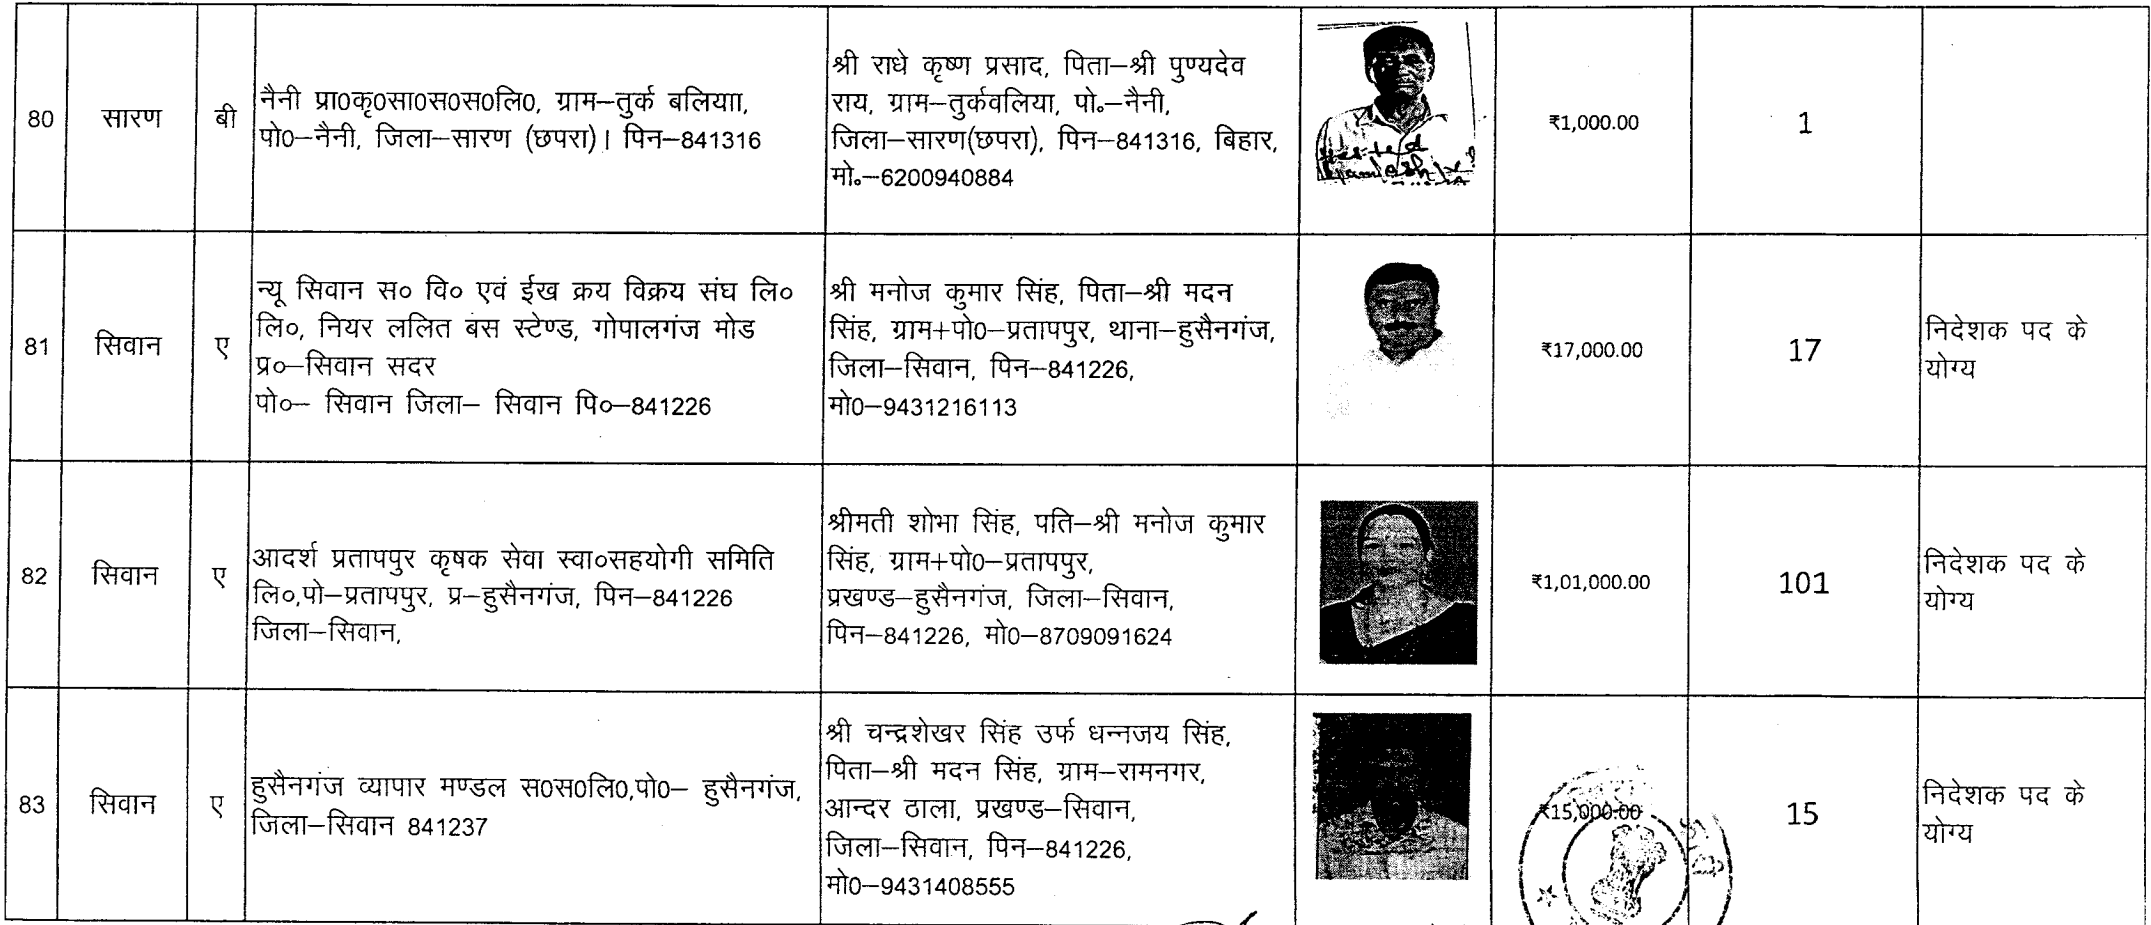 80
सारण
बी
नैनी प्रा0कृ0सा0स0स0लि0, ग्राम–तुर्क बलियाा,
पो0–नैनी, जिला–सारण (छपरा)। पिन–841316
श्री राधे कृष्ण प्रसाद, पिता–श्री पुण्यदेव
राय, ग्राम–तुर्कवलिया, पो०–नैनी,
जिला–सारण(छपरा), पिन–841316, बिहार,
मो०–6200940884
₹1,000.00
1
81
सिवान
ए
न्यू सिवान स० वि० एवं ईख क्रय विक्रय संघ लि०
लि०, नियर ललित बस स्टेण्ड, गोपालगंज मोड
प्र०–सिवान सदर
पो०– सिवान जिला– सिवान पि०–841226
श्री मनोज कुमार सिंह, पिता–श्री मदन
सिंह, ग्राम+पो0–प्रतापपुर, थाना–हुसैनगंज,
जिला–सिवान, पिन–841226,
मो0–9431216113
₹17,000.00
17
निदेशक पद के
योग्य
82
सिवान
ए
आदर्श प्रतापपुर कृषक सेवा स्वा०सहयोगी समिति
लि०,पो–प्रतापपुर, प्र–हुसैनगंज, पिन–841226
जिला–सिवान,
श्रीमती शोभा सिंह, पति–श्री मनोज कुमार
सिंह, ग्राम+पो0–प्रतापपुर,
प्रखण्ड–हुसैनगंज, जिला–सिवान,
पिन–841226, मो0–8709091624
₹1,01,000.00
101
निदेशक पद के
योग्य
83
सिवान
ए
हुसैनगंज व्यापार मण्डल स0स0लि0,पो0– हुसैनगंज,
जिला–सिवान 841237
श्री चन्द्रशेखर सिंह उर्फ धन्नजय सिंह,
पिता–श्री मदन सिंह, ग्राम–रामनगर,
आन्दर ठाला, प्रखण्ड–सिवान,
जिला–सिवान, पिन–841226,
मो0–9431408555
₹15,000.00
15
निदेशक पद के
योग्य